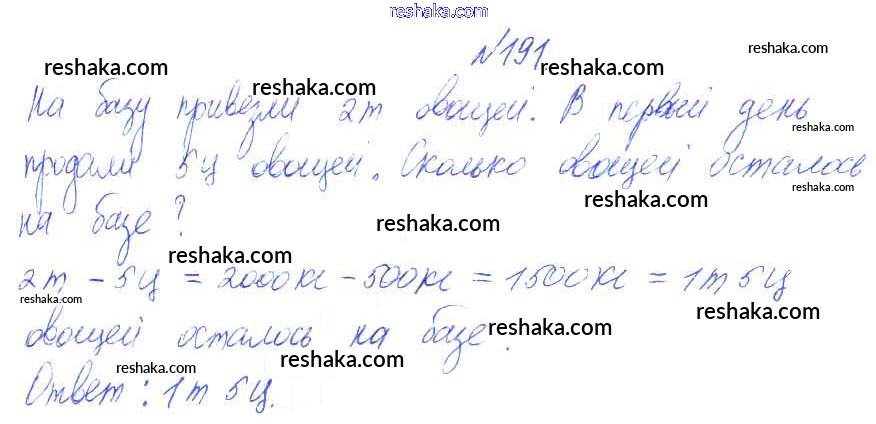 reshaka.com
№191
reshaka.com reshaka.com
reshaka.com
На базу привезли 2т овощей. В первый день
reshaka.com reshaka.com
продали 5ц овощей. Сколько овощей осталось
reshaka.com reshaka.com reshaka.com
на базе?
reshaka.com
reshaka.com
2т - 5ц = 2000кг - 500кг = 1500кг = 1т 5ц
reshaka.com reshaka.com
овощей осталось на базе.
reshaka.com
reshaka.com reshaka.com
Ответ: 1т 5ц.